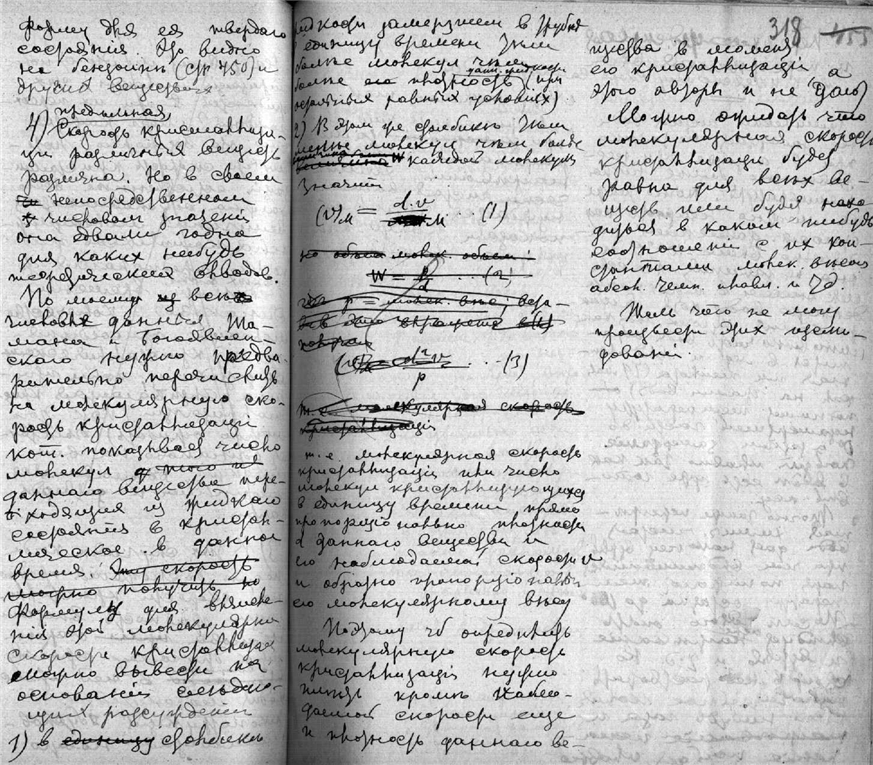 форму для ея твердаго
состоянія. Это видно
на бензоинѣ (стр 750) и
другихъ веществахъ
предѣльная
4) Скорость кристаллиза-
ціи различныхъ веществъ
различна. Но въ своемъ
непосредственномъ
числовомъ значеніи
она едвали годна
для какихъ нибудь
теоретическихъ выводовъ.
По моему всѣ
числовыя данныя Там-
мана и Богоявлен-
скаго нужно предва-
рительно перечислить
на молекулярную ско-
рость кристаллизаціи
кот. показываетъ число
молекулъ
даннаго вещества пере-
ходящихъ изъ жидкаго
состоянія въ кристал-
лическое въ данное
время. Эту скорость
можно получить по
Формулу для вычисле-
нія этой молекулярной
скорости кристаллизаціи
можно вывести на
основаніи слѣдую-
щихъ разсужденій
1) въ единицу столбикѣ
жидкости замерзшемъ въ трубкѣ
въ единицу времени тѣмъ
болѣе молекулъ чѣмъ
болѣе его плотность (при
остальныхъ равныхъ условіяхъ)
2) Въ этомъ же столбикѣ тѣмъ
менѣе молекулъ чѣмъ болѣе
каждой молекулы
Значитъ
(v)м = d.v / м ... (1)
но объемъ молек. объем:
W = p / d (2)
где p = молек. вѣс;
(v)м = d²v / p ... (3)
т.е. молекулярная скорость
кристаллизаціи
т.е. молекулярная скорость
кристаллизаціи или число
молекул кристаллизующихся
въ единицу времени прямо
пропорціонально плотности
d даннаго вещества и
его наблюдаемой скорости v
и обратно пропорціональн
его молекулярному вѣсу
Поэтому чтобъ опредѣлить
молекулярную скорость
кристаллизаціи нужно
знать кромѣ наблю-
даемой скорости еще
и плотность даннаго ве-
318
щества въ моментъ
его кристаллизаціи а
этого авторы и не даютъ
Можно ожидать что
молекулярная скорость
кристаллизаціи будетъ
равна для всѣхъ ве-
ществ или будетъ нахо-
диться въ какомъ нибудь
соотношеніи съ их кон-
стантами молек. вѣсом
абсол. темп. плавл. и т.д.
Жаль что не могу
произвести этихъ изслѣ-
дованій.